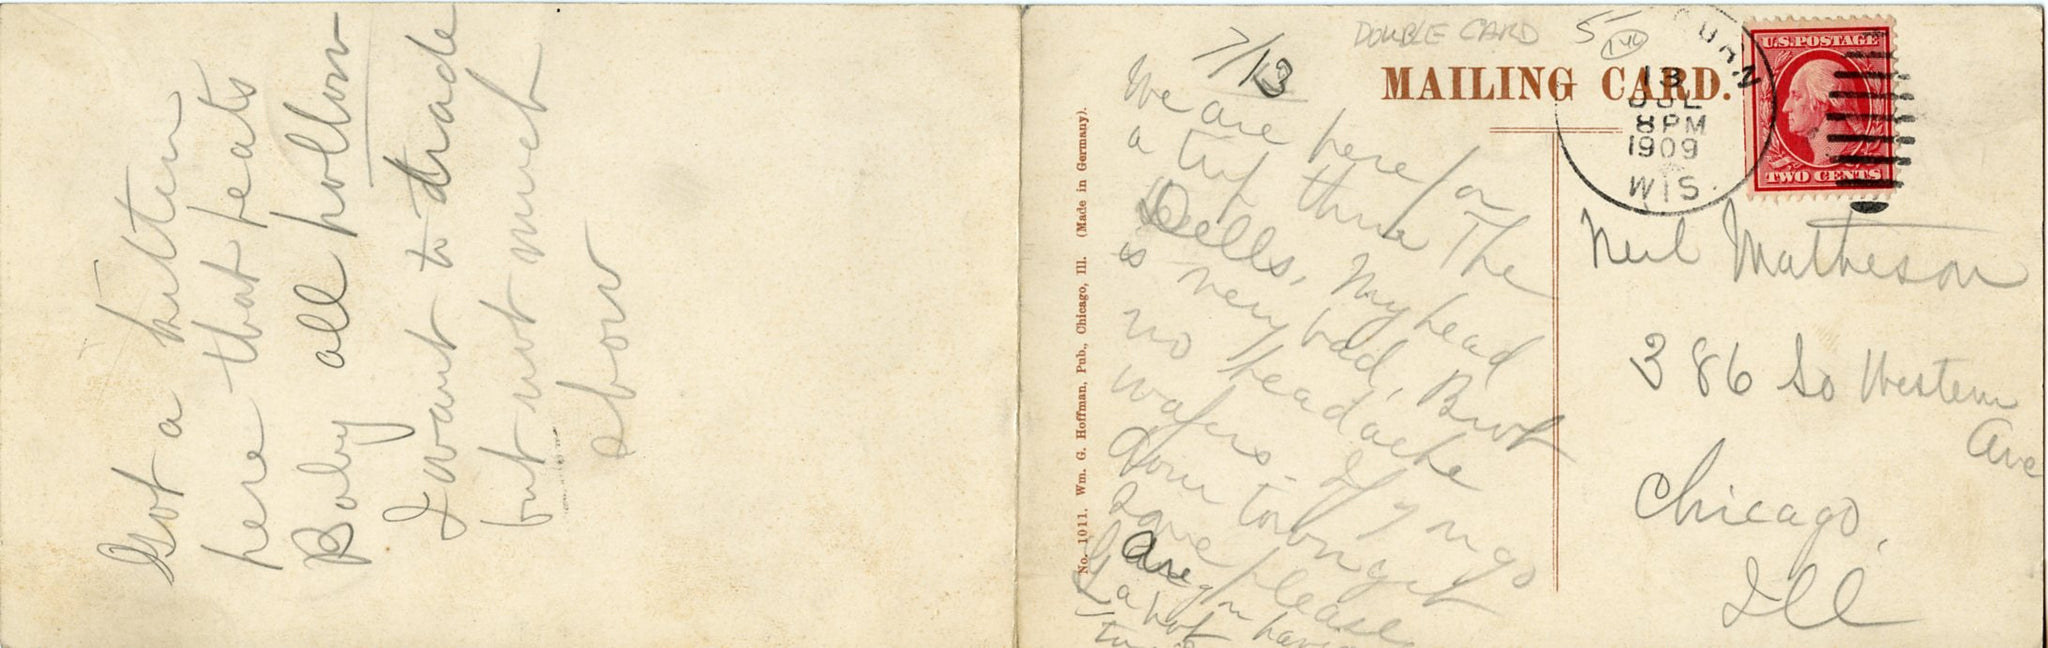 Got a kitten
here that beats
Boby all hollow
I want to trade
but not much
show
DOUBLE CARD 5-
MAILING CARD.
No. 1011. Wm. G. Hoffman, Pub., Chicago, Ill. (Made in Germany).
7/13
We are here for
a trip thru The
Dells, My head
is very bad, But
no headache
wafers. If you go
down town get
some please
Are you having
a hot
U.S. POSTAGE
TWO CENTS
13
JUL
8 PM
1909
WIS.
Neil Matheson
386 So Western
Ave
Chicago,
Ill